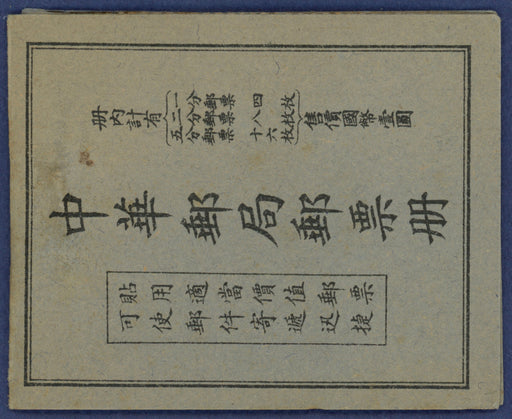 册內計有
一分郵票四枚
二分郵票八枚
五分郵票十六枚
售價國幣壹圓
中華郵局郵票册
貼用適當價值郵票
可使郵件寄遞迅捷